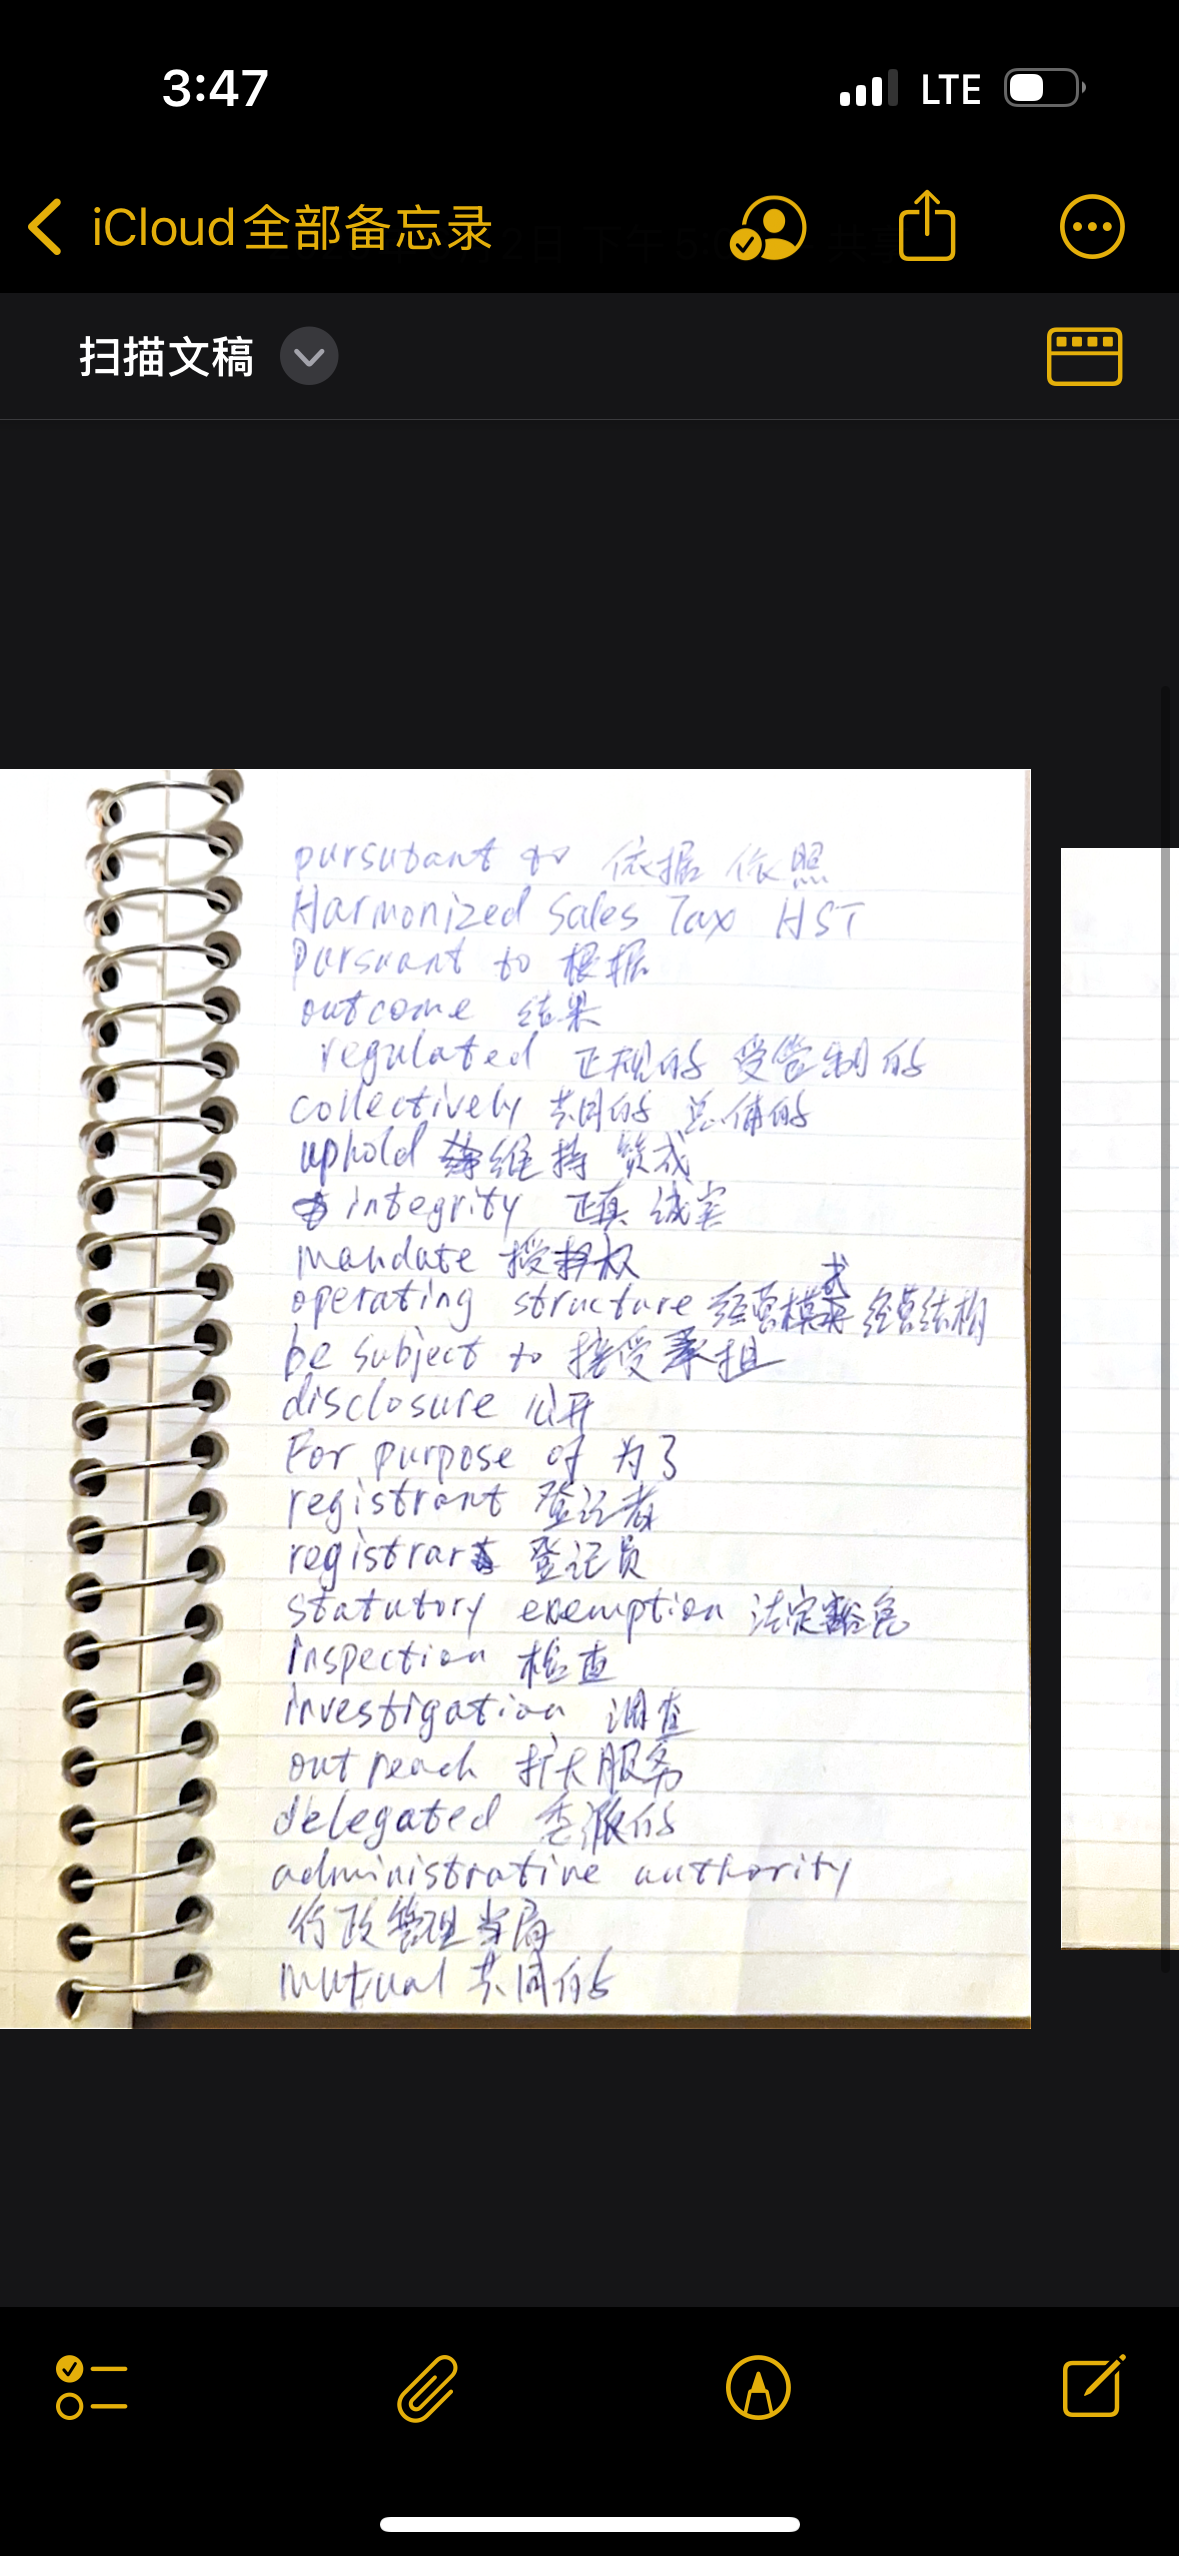 3:47
LTE
iCloud全部备忘录
扫描文稿
pursutant to 依据 依照
Harmonized Sales Tax HST
Pursuant to 根据
outcome 结果
regulated 正规的 受管制的
collectively 共同的 总体的
uphold 维持 赞成
integrity 正真 诚实
mandate 授权
operating structure 经营模式 经营结构
be subject to 接受 承担
disclosure 公开
For purpose of 为了
registrant 登记者
registrar 登记员
statutory exemption 法定豁免
Inspection 检查
investigation 调查
outreach 扩大服务
delegated 委派的
administrative authority
行政管理当局
mutual 共同的